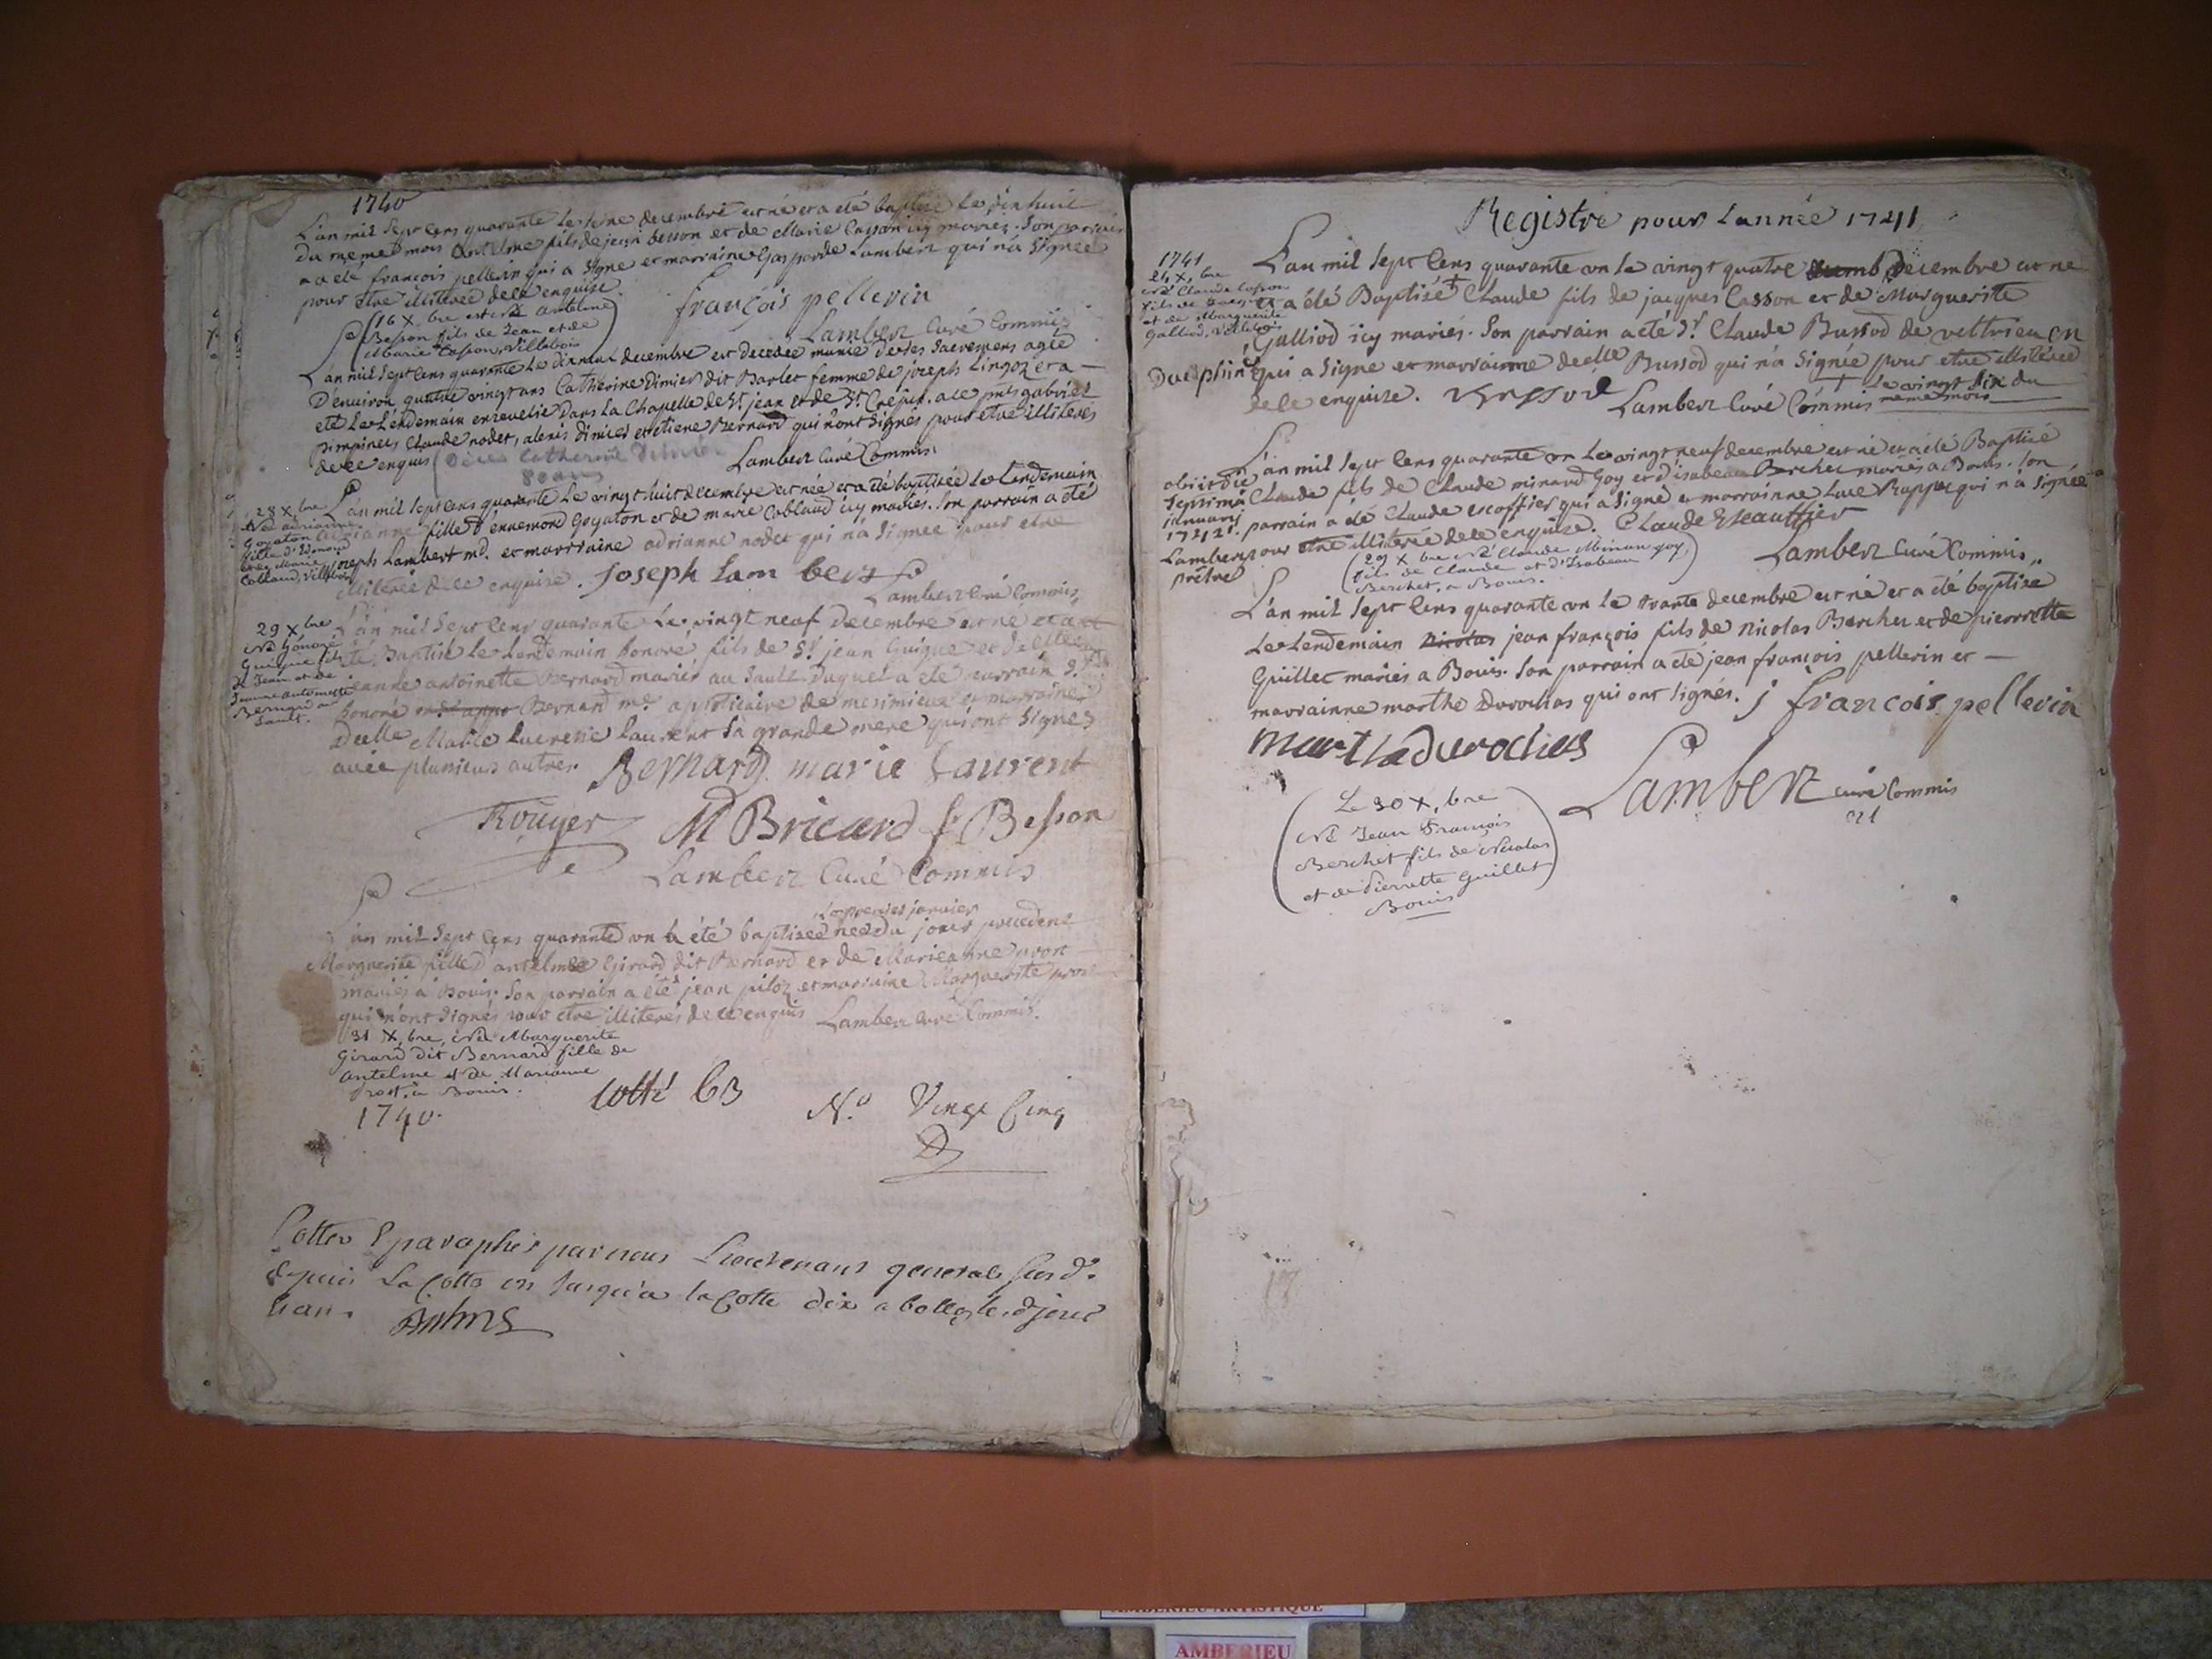 1740
L'an mil sept cens quarante le seize decembre est né et a eté baptisé le dixhuit
du meme mois antelme fils de jean besson et de Marie Casson icy mariés. Son parrain
a eté françois pellerin qui a signé et marraine Gasparde Lambert qui n'a signée
pour etre illiterée de ce enquise.
françois pellerin
(16 X. bre est né antelme
Besson fils de Jean et de
Marie Casson, Villebois)
Lambert Curé Commis
L'an mil sept cens quarante le dixneuf decembre est decedée munie de ses sacremens agée
D'environ quatre vingt ans Catherine Dimier dit Barlet femme de joseph Lingoz et a
eté le Lendemain ensevelie dans La Chapelle de St. jean et de St. Crépin. a ce pnts gabriel
Claude nodet, alexis Dimier et etiene Bernard qui n'ont signés pour etre illiterés
de ce enquis (Décès Catherine Dimier
80 ans
Lambert Curé Commis
28 X. bre
Né adrianne
Goyaton
fille d'Ennemond
et de Marie
Coblaud, Villebois
L'an mil sept cens quarante Le vingt huit decembre est née et a eté baptisée le Lendemain
adrianne fille d'ennemond Goyaton et de marie Coblaud icy mariés. Son parrain a eté
joseph Lambert md. et marraine adrianne nodet qui n'a signée pour etre
illiterée de ce enquise. Joseph Lambert
Lambert Curé Commis
29 X bre
Né honoré
Guigue fils
de Jean et de
Jeanne antoinette
Bernard au
Sault.
L'an mil sept cens quarante Le vingt neuf Decembre est né et a
eté Baptisé le Lendemain honoré fils de Sr. jean Guigue et de
jeanne antoinette Bernard mariés au Sault Duquel a eté parrain Sr.
honoré Bernard me. apoticaire de meximieux et marraine
Delle Marie Lucresse laurent sa grande mere qui ont signés
avec plusieurs autres. Bernard marie Laurent
Rouyer M Bricard f. Besson
Lambert Curé Commis
le premier janvier
L'an mil sept cens quarante un a été baptisée née du jour precedent
Marguerite fille d'antelme Girard dit Bernard et de Marieanne prost
mariés a Bouis. Son parrain a été jean piloz et marraine Marguerite prost
qui n'ont signés pour etre illiterés de ce enquis Lambert Curé Commis.
31 X, bre, Né Marguerite
Girard dit Bernard fille de
antelme et de Marianne
Prost, à Bouis.
1740.
Cotté 63
N.o Vingt Cinq
Cotter & paraphés par nous Lieutenant general susd.
depuis La Cotte un Jusqu'a la Cotte dix a belley le d jour
& an.
Registre pour l'année 1741
1741
24 X, bre
Né Claude Casson
fils de Jacques
et de Marguerite
Galliod, Villebois
L'an mil sept cens quarante un le vingt quatre decembre est né
et a été Baptisé + Claude fils de jacques Casson et de Marguerite
Galliod icy mariés. Son parrain a eté Sr. Claude Bussod de veltrieu en
Dauphiné qui a signé et marrainne delle Bussod qui n'a signée pour etre illiterée
de ce enquise. Bussod
Lambert Curé Commis
+ Le vingt six du
meme mois
L'an mil sept cens quarante un Le vingt neuf decembre est né et a eté Baptisé
Claude fils de Claude minand Goy et d'isabeau Berchet mariés a Bouis. Son
parrain a eté Claude escoffier qui a signé et marrainne Luce Rappe qui n'a signée
pour etre illiterée de ce enquise. Claude Escauffier
obiit die
septima
januarii
1742.
Lambert
prêtre
(29 X bre Né Claude Minan goy,
fils de Claude et d'Isabeau
Berchet, à Bouis.)
Lambert Curé Commis
L'an mil sept cens quarante un le trante decembre est né et a eté baptisé
Le Lendemain Nicolas jean françois fils de Nicolas Berchet et de pierrette
Guillet mariés a Bouis. Son parrain a eté jean françois pellerin et
marrainne marthe Durochas qui ont signés. j françois pellerin
Lambert curé Commis
(Le 30 X, bre
Né Jean François
Berchet fils de Nicolas
et de Pierrette Guillet
Bouis)
AMBERIEU ARTISTIQUE
AMBERIEU